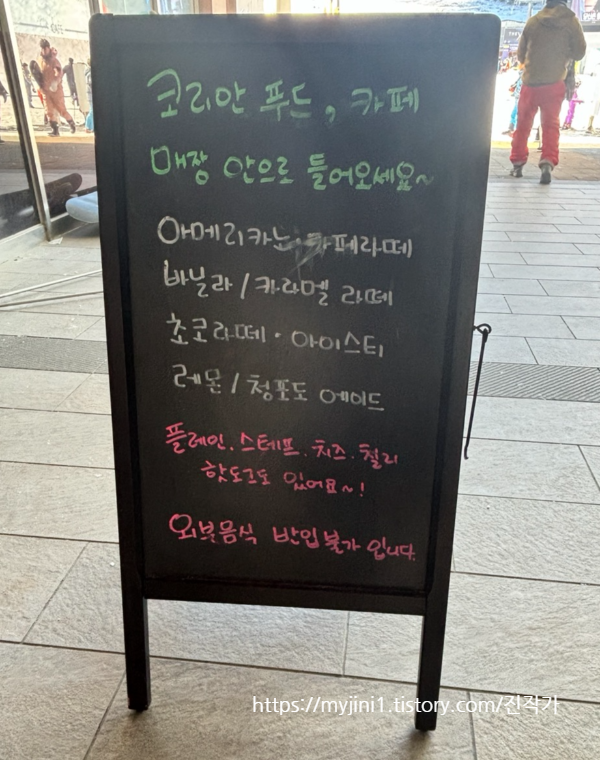 코리안 푸드, 카페
매장 안으로 들어오세요~
아메리카노·카페라떼
바닐라/카라멜 라떼
초코라떼·아이스티
레몬/청포도 에이드
플레인.스테프.치즈.칠리
핫도그도 있어요~!
외부음식 반입불가 입니다.
https://myjini1.tistory.com/진작가